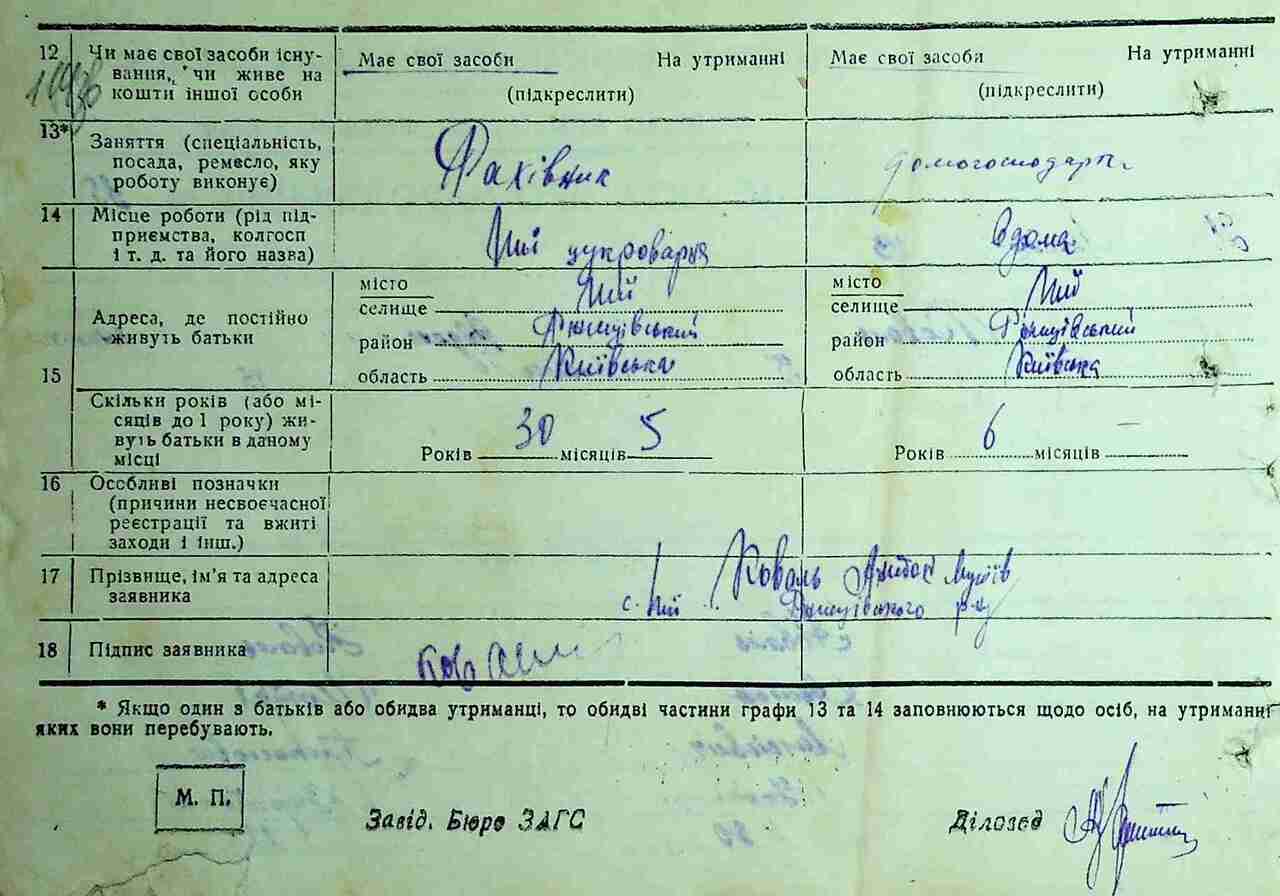 12 Чи має свої засоби існу-
вання, чи живе на
кошти іншої особи
Має свої засоби На утриманні
(підкреслити)
Має свої засоби На утриманні
(підкреслити)
13* Заняття (спеціальність,
посада, ремесло, яку
роботу виконує)
Фахівник
домогосподарк.
14 Місце роботи (рід під-
приємства, колгосп
і т. д. та його назва)
цукроварня
Вдома
15 Адреса, де постійно
живуть батьки
місто
селище
район
область Київська
місто
селище
район
область Київська
Скільки років (або мі-
сяців до 1 року) жи-
вуть батьки в даному
місці
Років 30 місяців 5
Років 6 місяців —
16 Особливі позначки
(причини несвоєчасної
реєстрації та вжиті
заходи і інш.)
17 Прізвище, ім’я та адреса
заявника
Коваль
с. р-ну
18 Підпис заявника
* Якщо один з батьків або обидва утриманці, то обидві частини графи 13 та 14 заповнюються щодо осіб, на утриманні
яких вони перебувають.
М. П.
Завід. Бюро ЗАГС
Діловод